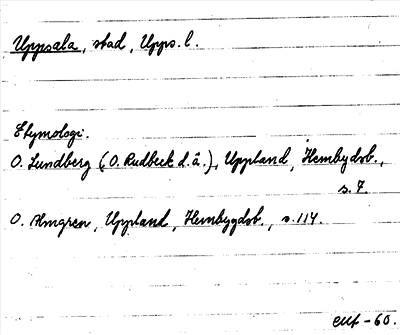 Uppsala, stad, Upps. l.
Etymologi.
O. Lundberg (O. Rudbeck d.ä.), Uppland, Hembydsb.,
s. 7.
O. Almgren, Uppland, Hembygdsb., s. 114.
- 60.